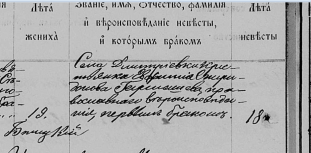 Лѣта
жениха
Званіе, имя, отчество, фамилія
и вѣроисповѣданіе невѣсты,
и которымъ бракомъ
Лѣта
невѣсты
Села Дмитровки кре-
стьянка Евфимія Спири-
донова, пра-
вославнаго вѣроисповѣда-
нія, первымъ бракомъ
19.
18